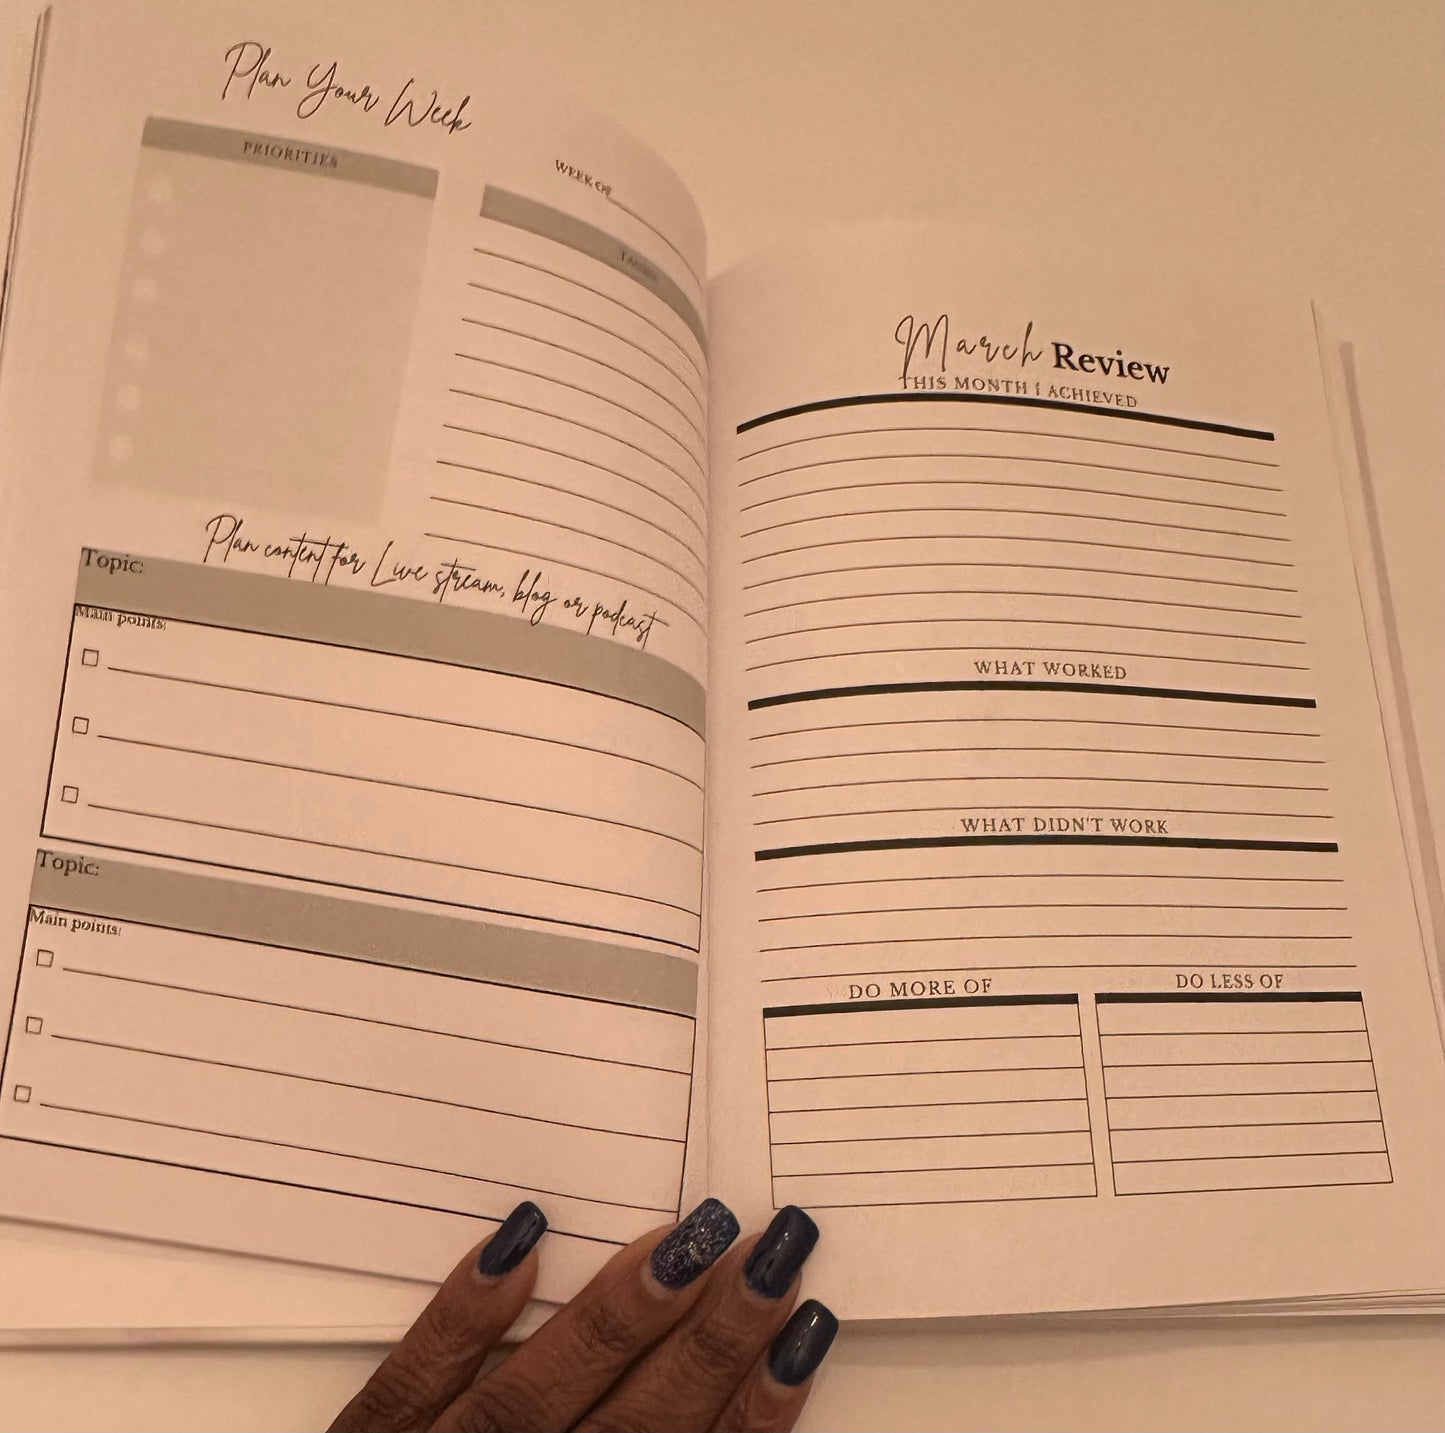 Plan Your Week
PRIORITIES
WEEK OF
TASKS
Plan content for Live stream, blog or podcast
Topic:
Main points:
Topic:
Main points:
March Review
THIS MONTH I ACHIEVED
WHAT WORKED
WHAT DIDN'T WORK
DO MORE OF
DO LESS OF